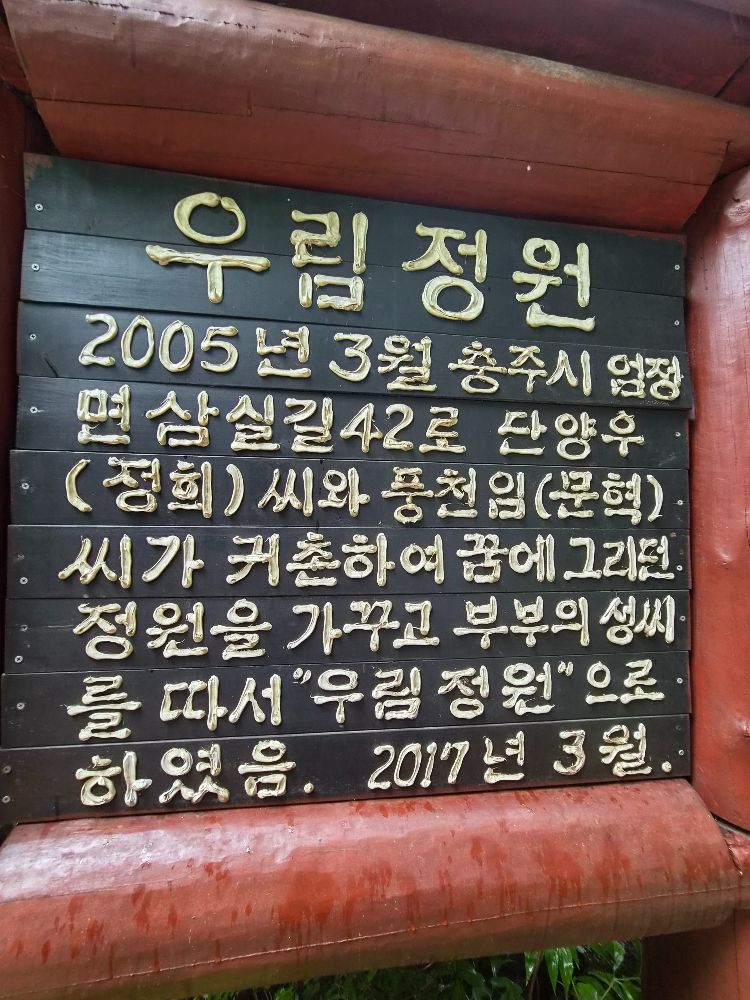 우림정원
2005년 3월 충주시 엄정
면 삼실길42로 단양우
(정희)씨와 풍천임(문혁)
씨가 귀촌하여 꿈에그리던
정원을 가꾸고 부부의성씨
를 따서 "우림정원"으로
하였음. 2017년 3월.